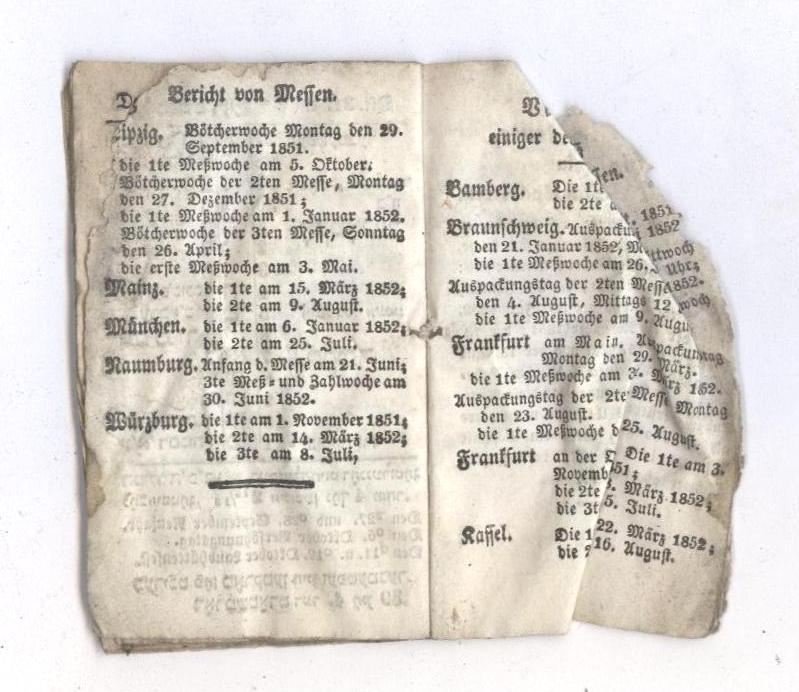 Bericht von Messen.
Leipzig. Bötcherwoche Montag den 29.
September 1851.
die 1te Meßwoche am 5. Oktober;
Bötcherwoche der 2ten Messe, Montag
den 27. Dezember 1851;
die 1te Meßwoche am 1. Januar 1852.
Bötcherwoche der 3ten Messe, Sonntag
den 26. April;
die erste Meßwoche am 3. Mai.
Mainz. die 1te am 15. März 1852;
die 2te am 9. August.
München. die 1te am 6. Januar 1852;
die 2te am 25. Juli.
Naumburg. Anfang d. Messe am 21. Juni;
3te Meß- und Zahlwoche am
30. Juni 1852.
Würzburg. die 1te am 1. November 1851;
die 2te am 14. März 1852;
die 3te am 8. Juli,
einiger
Bamberg. Die 1te
die 2te 1851.
Braunschweig. Auspackung 1852
den 21. Januar 1852, Mittwoch
die 1te Meßwoche am 26. Uhr;
Auspackungstag der 2ten Messe 1852.
den 4. August, Mittags 12 woch
die 1te Meßwoche am 9. Augu.
Frankfurt am Main. Auspackungstag
Montag den 29. März.
die 1te Meßwoche am März 1852.
Auspackungstag der 2te Messe Montag
den 23. August.
die 1te Meßwoche d 25. August.
Frankfurt an der O Die 1te am 3.
Novemb 51;
die 2te März 1852;
die 3t 5. Juli.
Kassel. Die 1 22. März 1852;
die 2 16. August.